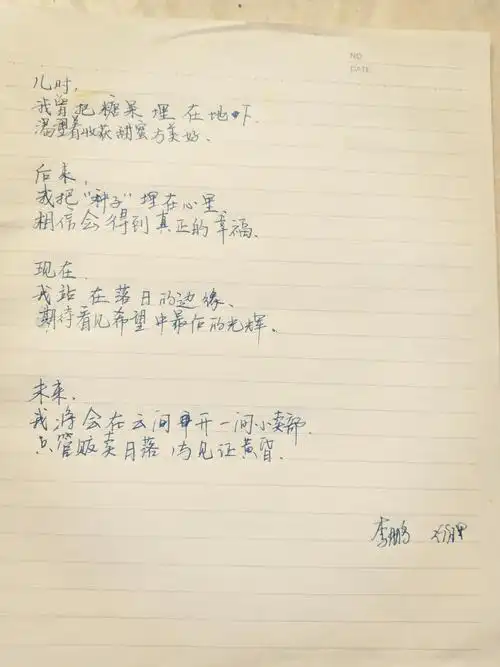 NO
DATE
儿时,
我曾把糖果埋在地下.
渴望着收获甜蜜与美好.
后来,
我把“种子”埋在心里.
相信会得到真正的幸福.
现在.
我站在落日的边缘.
期待看见希望中最后的光辉.
未来.
我将会在云间开一间小卖部.
只管贩卖日落与见证黄昏.
李鹏